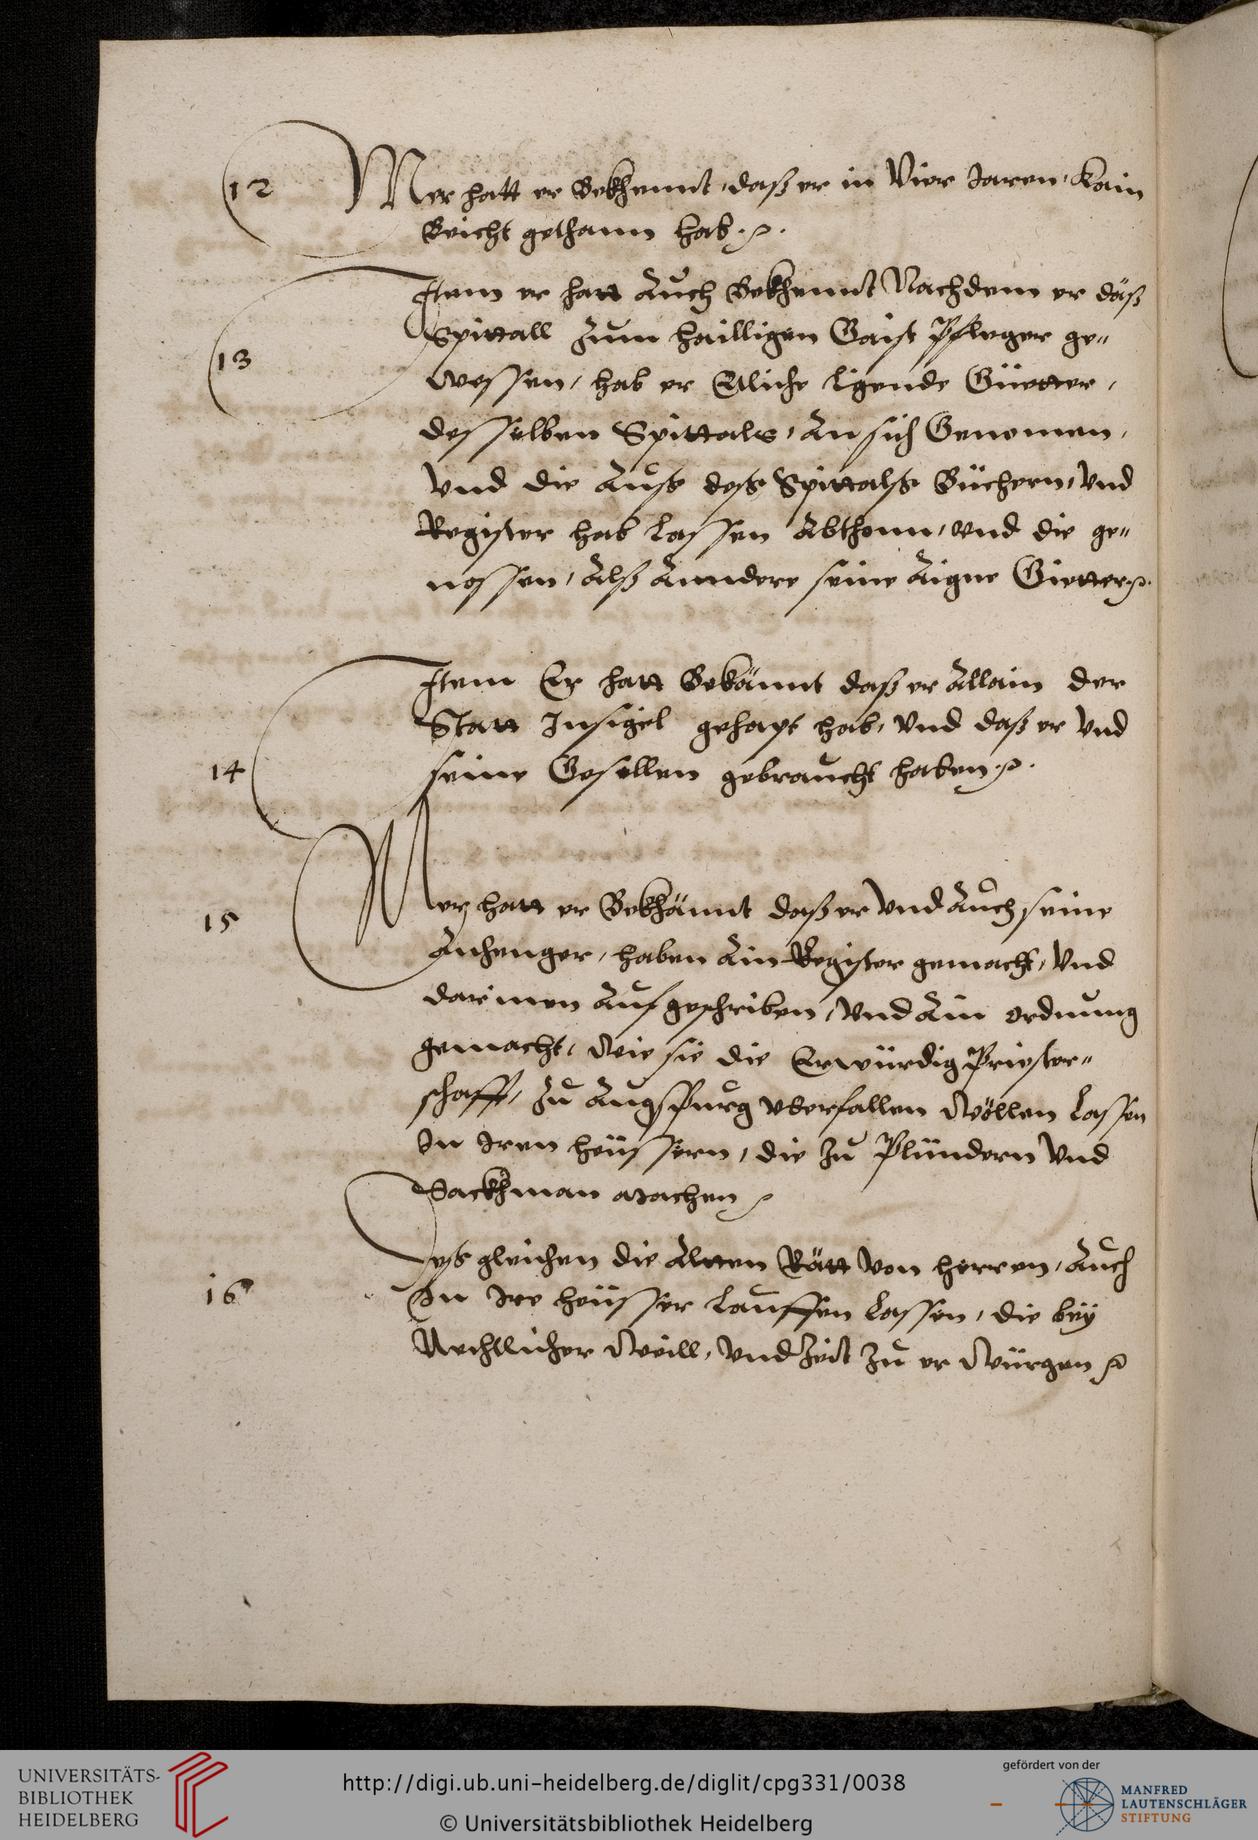 12 Mer hatt er Bekhennt, daß er in Vier Jaren, Kain
Beicht gethann hab.
Item er hatt Auch Bekhennt Nachdem er daß
13 Spittall Zum heilligen Gaist Pfleger ge-
wessen, hab er Etliche ligende Güetter,
desselben Spittals, An sich Genomen,
Vnd die Auß deß Spittalß Büchern, Vnd
Register hab Lassen Abthonn, vnd die ge-
nossen, Alß Anndere seine Aigne Gietter.
Item Er hatt Bekännt daß er Allain der
Statt Insigel gehapt hab, Vnd daß er Vnd
14 seine Gesellen gebraucht haben.
15 Mer hatt er Bekhännt daß er Vnd Auch seine
Anhenger, haben Ain Register gemacht, Vnd
darinnen Aufgeschriben, Vnd Ain Ordnung
gemacht, Wie sie die Erwürdig Priester-
schafft, Zu Augspurg vberfallen Wöllen Lassen
In Iren heüssern, die Zu Plündern Vnd
Sackhman machen
Deßgleichen die Altten Rätt von herren, Auch
16 In Ire heüsser Lauffen Lassen, die bey
Nechtlicher Weill, Vnd Zeit Zu er Würgen
UNIVERSITÄTS-
BIBLIOTHEK
HEIDELBERG
http://digi.ub.uni-heidelberg.de/diglit/cpg331/0038
© Universitätsbibliothek Heidelberg
gefördert von der
MANFRED
LAUTENSCHLÄGER
STIFTUNG